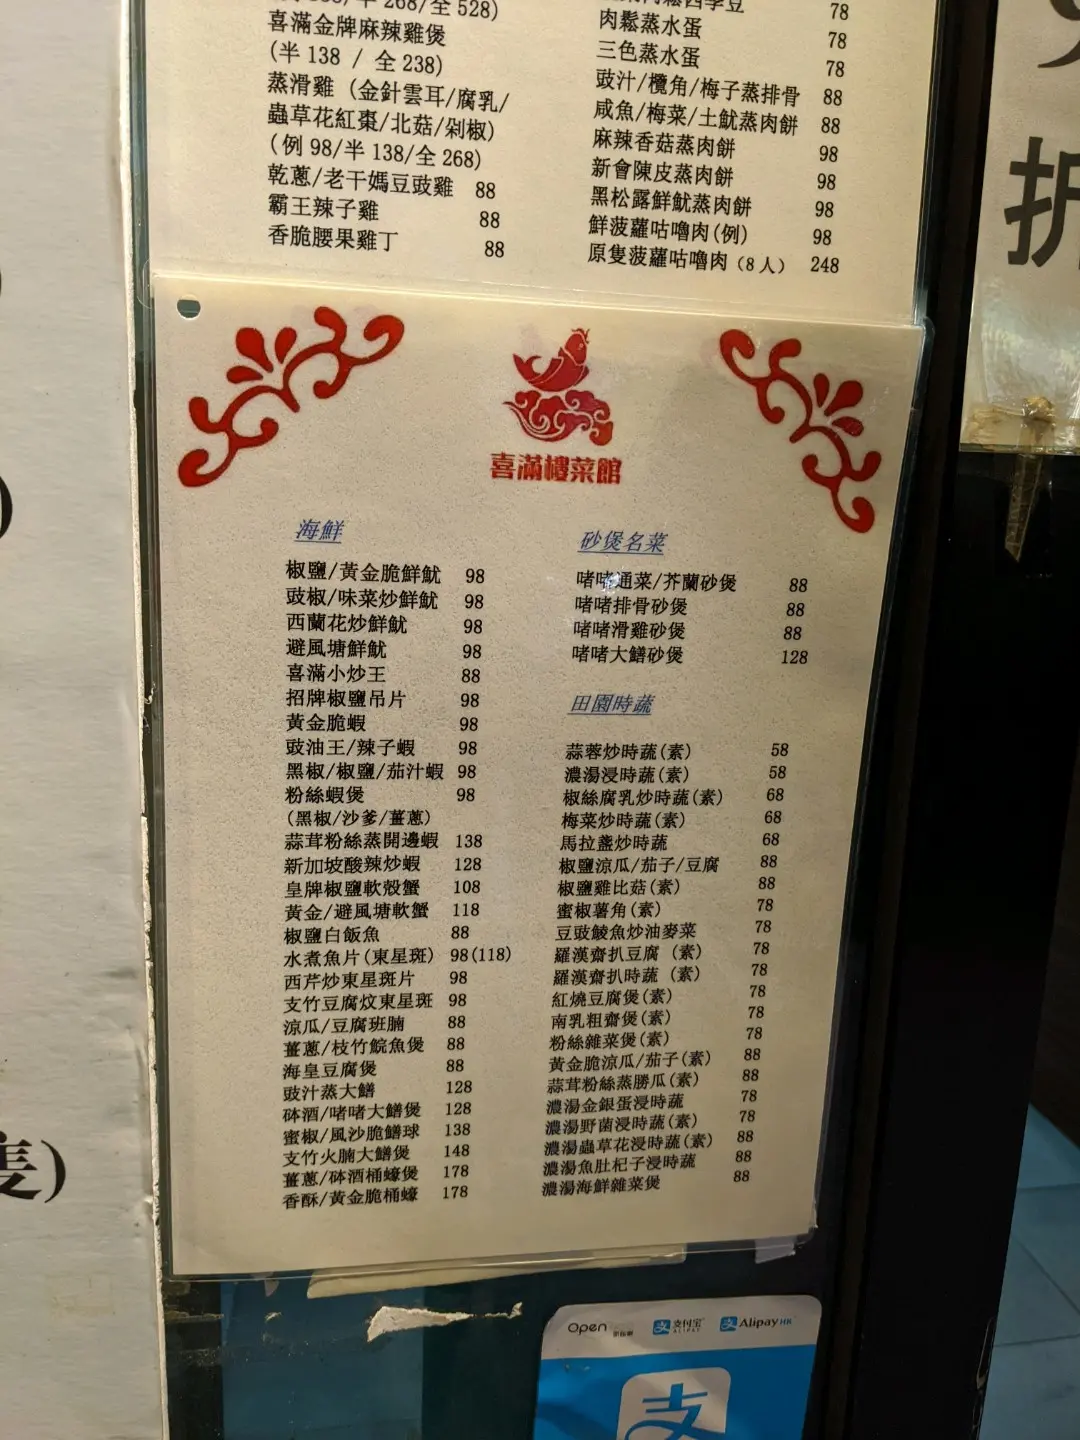 喜滿金牌麻辣雞煲
(半 138 / 全 238)
蒸滑雞 (金針雲耳/腐乳/
蟲草花紅棗/北菇/剁椒)
(例 98/半 138/全 268)
乾蔥/老干媽豆豉雞 88
霸王辣子雞 88
香脆腰果雞丁 88
78
肉鬆蒸水蛋 78
三色蒸水蛋 78
豉汁/欖角/梅子蒸排骨 88
咸魚/梅菜/土魷蒸肉餅 88
麻辣香菇蒸肉餅 98
新會陳皮蒸肉餅 98
黑松露鮮魷蒸肉餅 98
鮮菠蘿咕嚕肉(例) 98
原隻菠蘿咕嚕肉 (8人) 248
喜滿樓菜館
海鮮
椒鹽/黃金脆鮮魷 98
豉椒/味菜炒鮮魷 98
西蘭花炒鮮魷 98
避風塘鮮魷 98
喜滿小炒王 88
招牌椒鹽吊片 98
黃金脆蝦 98
豉油王/辣子蝦 98
黑椒/椒鹽/茄汁蝦 98
粉絲蝦煲 98
(黑椒/沙爹/薑蔥)
蒜茸粉絲蒸開邊蝦 138
新加坡酸辣炒蝦 128
皇牌椒鹽軟殼蟹 108
黃金/避風塘軟蟹 118
椒鹽白飯魚 88
水煮魚片(東星斑) 98(118)
西芹炒東星斑片 98
支竹豆腐炆東星斑 98
涼瓜/豆腐班腩 88
薑蔥/枝竹鯇魚煲 88
海皇豆腐煲 88
豉汁蒸大鱔 128
砵酒/啫啫大鱔煲 128
蜜椒/風沙脆鱔球 138
支竹火腩大鱔煲 148
薑蔥/砵酒桶蠔煲 178
香酥/黃金脆桶蠔 178
砂煲名菜
啫啫通菜/芥蘭砂煲 88
啫啫排骨砂煲 88
啫啫滑雞砂煲 88
啫啫大鱔砂煲 128
田園時蔬
蒜蓉炒時蔬(素) 58
濃湯浸時蔬(素) 58
椒絲腐乳炒時蔬(素) 68
梅菜炒時蔬(素) 68
馬拉盞炒時蔬 68
椒鹽涼瓜/茄子/豆腐 88
椒鹽雞比菇(素) 88
蜜椒薯角(素) 78
豆豉鯪魚炒油麥菜 78
羅漢齋扒豆腐 (素) 78
羅漢齋扒時蔬 (素) 78
紅燒豆腐煲(素) 78
南乳粗齋煲(素) 78
粉絲雜菜煲(素) 78
黃金脆涼瓜/茄子(素) 88
蒜茸粉絲蒸勝瓜(素) 88
濃湯金銀蛋浸時蔬 78
濃湯野菌浸時蔬(素) 78
濃湯蟲草花浸時蔬(素) 88
濃湯魚肚杞子浸時蔬 88
濃湯海鮮雜菜煲 88
折
隻)
Open
支付宝
ALIPAY
AlipayHK
支